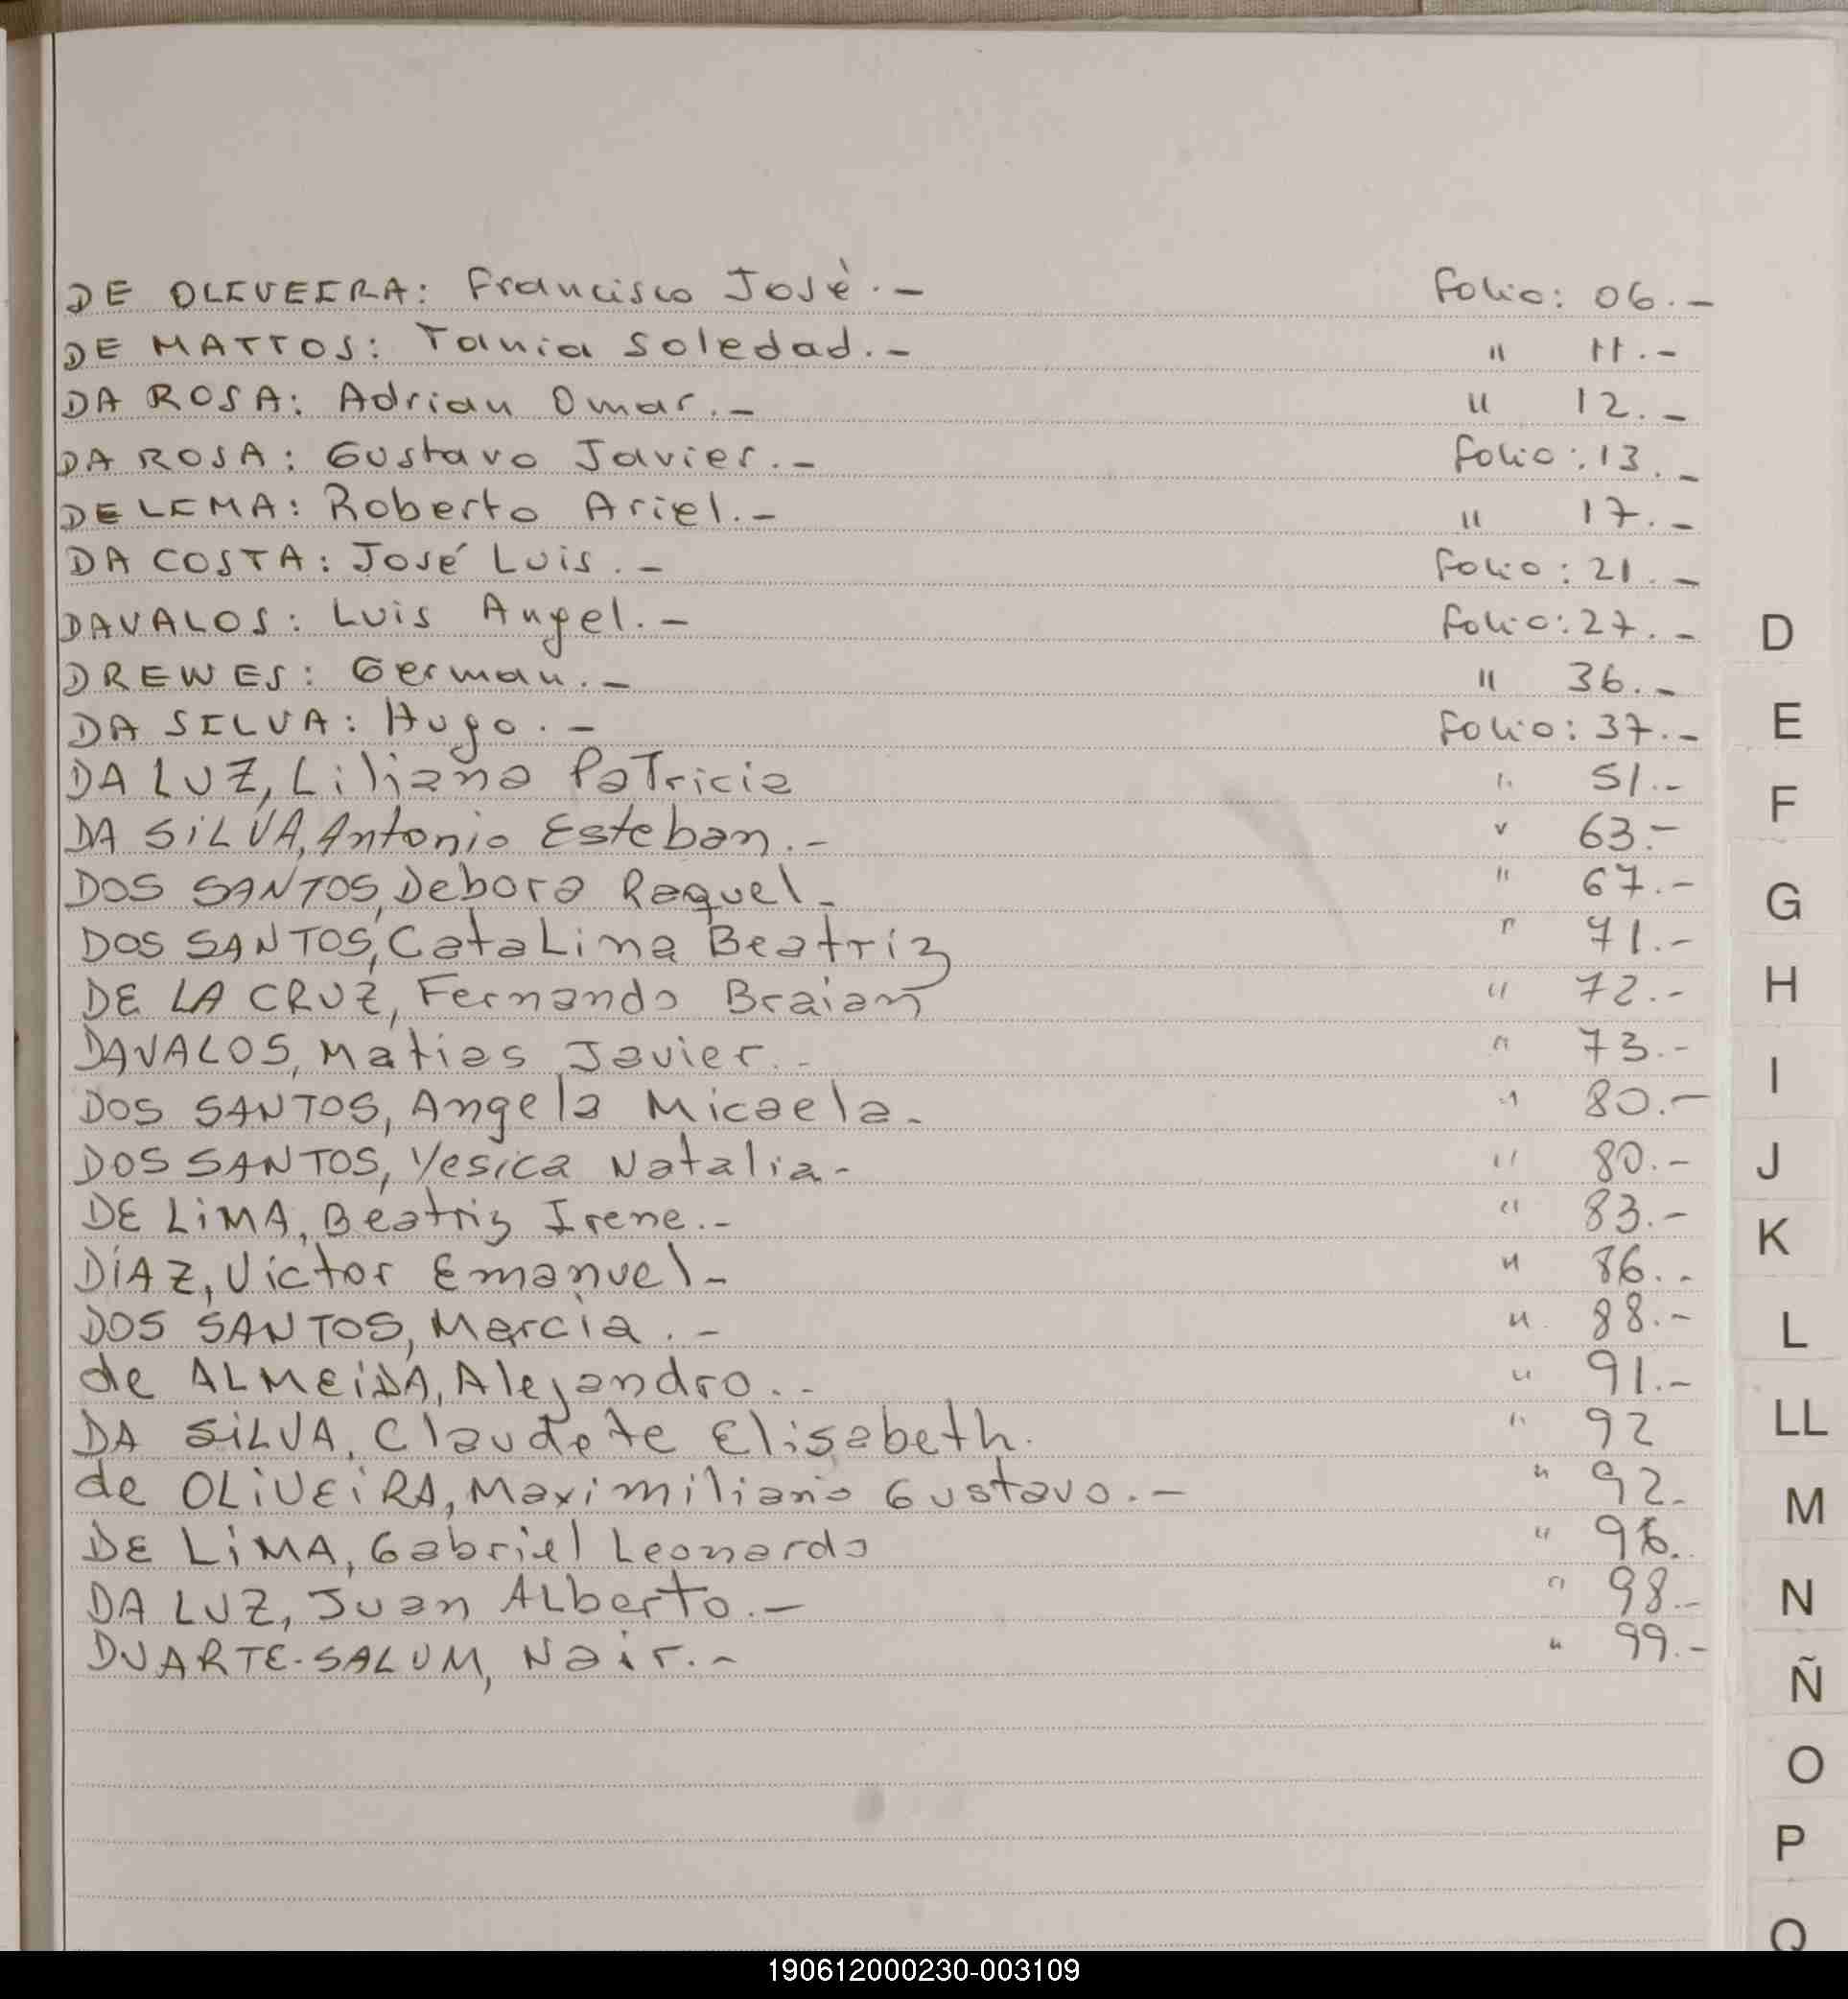 DE OLIVEIRA: Francisco José.- Folio: 06.-
DE MATTOS: Tania Soledad.- " 11.-
DA ROSA: Adrian Omar.- " 12.-
DA ROSA: Gustavo Javier.- Folio: 13.-
DE LEMA: Roberto Ariel.- " 17.-
DA COSTA: José Luis.- Folio: 21.-
DAVALOS: Luis Angel.- Folio: 27.-
DREWES: German.- " 36.-
DA SILVA: Hugo.- Folio: 37.-
DA LUZ, Liliana Patricia " 51.-
DA SILVA, Antonio Esteban.- " 63.-
DOS SANTOS, Debora Raquel.- " 67.-
DOS SANTOS, Catalina Beatriz " 71.-
DE LA CRUZ, Fernando Braian " 72.-
DAVALOS, Matias Javier.- " 73.-
DOS SANTOS, Angela Micaela.- " 80.-
DOS SANTOS, Yesica Natalia- " 80.-
DE LIMA, Beatriz Irene.- " 83.-
DÍAZ, Victor Emanuel- " 86.-
DOS SANTOS, Marcia.- " 88.-
de ALMEIDA, Alejandro.- " 91.-
DA SILVA, Claudete Elisabeth. " 92
de OLIVEIRA, Maximiliano Gustavo.- " 92.
DE LIMA, Gabriel Leonardo " 96.
DA LUZ, Juan Alberto.- " 98.-
DUARTE-SALUM, Nair.- " 99.-
D
E
F
G
H
I
J
K
L
LL
M
N
Ñ
O
P
Q
190612000230-003109